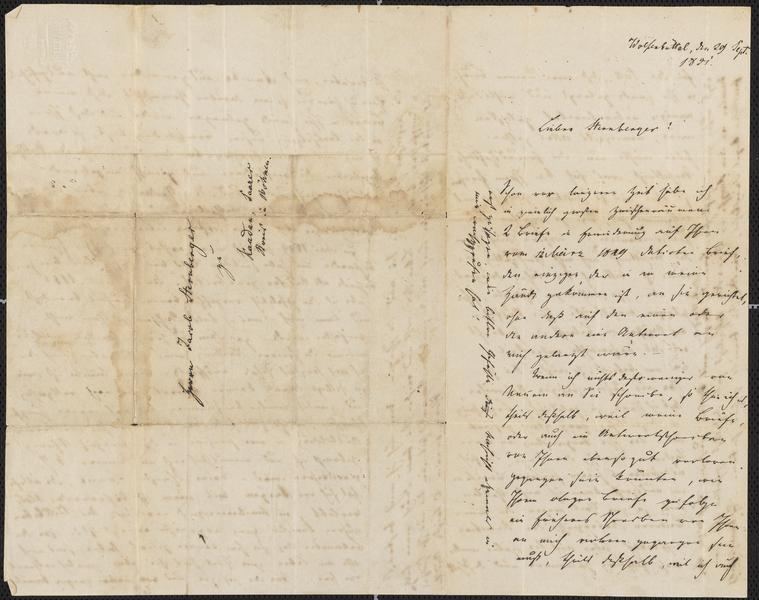 Wolfenbüttel, den 29 Sept.
1851.
Lieber Sternberger!
Schon vor längerer Zeit habe ich
in ziemlich großen Zwischenräumen
2 Briefe in Erwiderung auf Ihren
vom 1849 datirten Brief,
den einzigen der in meine
Hände gekommen ist, an Sie gerichtet,
ohne daß auf den einen oder
den andern eine Antwort an
mich gelangt wäre. —
Wenn ich nichts destoweniger von
Neuem an Sie schreibe, so
theils deßhalb, weil meine Briefe,
oder auch ein Antwortschreiben
von Ihnen ebenso gut verloren
gegangen sein könnten, wie
Ihrem obigen Briefe zufolge
ein früheres Schreiben von Ihnen
an mich verloren gegangen sein
muß, theils deßhalb, weil ich auch
Herrn Jacob Sternberger
zu
Kaaden, Saazer
Kreis in Böhmen.